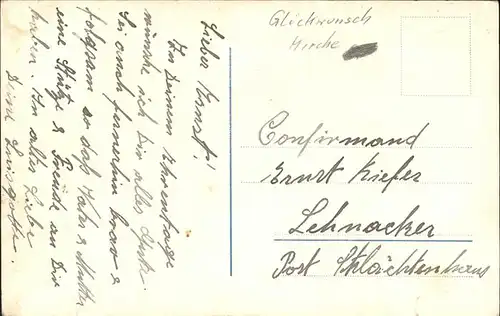 Lieber Ernst!
In Deinem Ehrentage
wünsche ich Dir alles Gute.
Sei auch fernerhin brav &
folgsam so daß Vater & Mutter
eine Stütze & Freude an Dir
haben. In alter Liebe
Deine
Glückwunsch
Kirche
Confirmand
Ernst Kiefer
Lehnacker
Post Schlächtenhaus